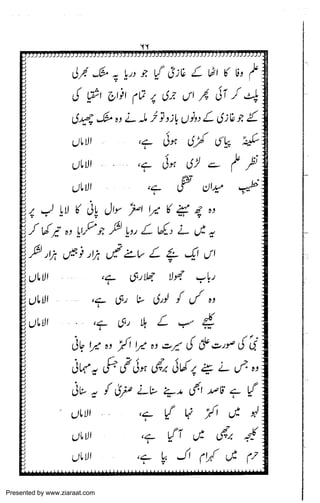 ۶۶
علم وفا کا اٹھا کے غازیؑ گیا جو دریا پہ مشک بھرلی
پلٹ کر آئی پھر اس جری پر تمام افواج اشقیا کی
کٹے جو غازیؑ کے دونوں بازو تو حُر ملہ نے وہ مشک چھیدی
سکینہؑ پیاسی کھڑی ہوئی ہے، الاماں
نظر علم سے لڑی ہوئی ہے، الاماں
خطیب میدان تشنگی ہے، الاماں
وہ چھ مہینے کا میرا اصغرؑ سوال پانی کا لایا لب پر
یہ میں نے دیکھا کے رویا لشکر جو مسکرایا وہ تیر کھا کر
اس ایک بچے کے سامنے تھیں ہزار فوجیں ہزار لشکر
ربابؑ جھولا جھلا رہی ہے، الاماں
وہ کس کو لوری سنا رہی ہے، الاماں
کلیجے سب کے ہلا رہی ہے، الاماں
نبیؐ کی صورت علیؑ کی سیرت وہ میرا اکبرؑ وہ میرا جانی
وہ جس نے سینے پر کھائی برچھی ہوئی تھی جسکی یہ مہمانی
گیا ہے قاصد ابھی مدینے سنانے صغریٰؑ کو یہ سنانی
لہو میں اکبرؑ نہا گیا ہے، الاماں
کلیجہ برچھی میں آگیا ہے، الاماں
حرم میں کہرام اک بپا ہے، الاماں
Presented by www.ziaraat.com